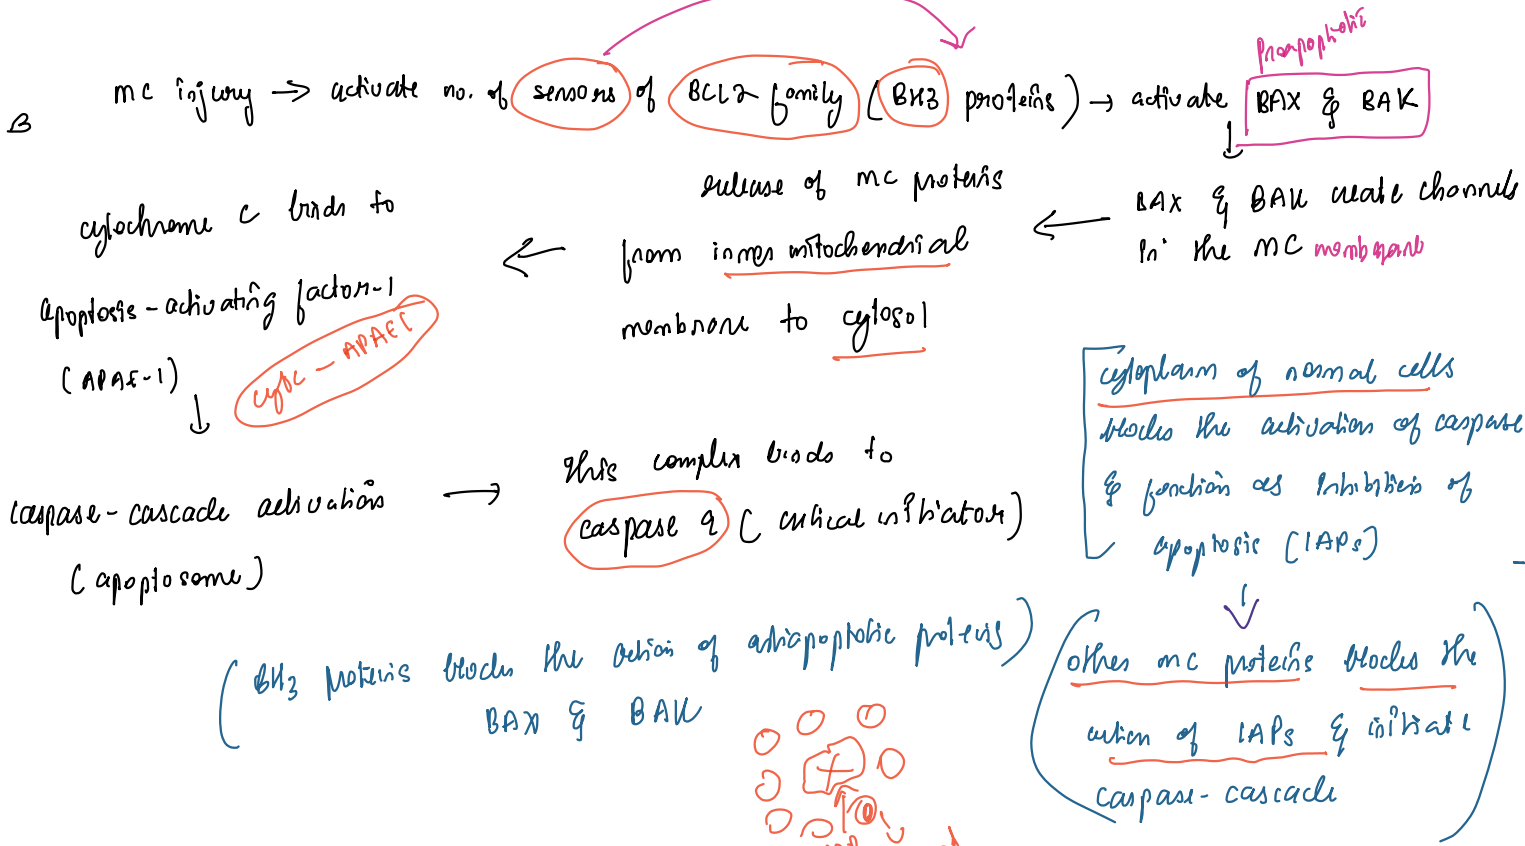 Proapoptotic
mc injury → activate no. of sensors of BCL2-family (BH3 proteins) → activate BAX & BAK
B
BAX & BAK create channels
in the mc membrane
release of mc proteins
from inner mitochondrial
membrane to cytosol
cytochrome c binds to
apoptosis-activating factor-1
(APAF-1)
cytc - APAF1
caspase-cascade activation
(apoptosome)
this complex binds to
caspase 9 (critical initiator)
cytoplasm of normal cells
blocks the activation of caspase
& function as inhibitors of
apoptosis (IAPs)
other mc proteins blocks the
action of IAPs & initiate
caspase-cascade
(BH3 proteins blocks the action of antiapoptotic proteins)
BAX & BAK